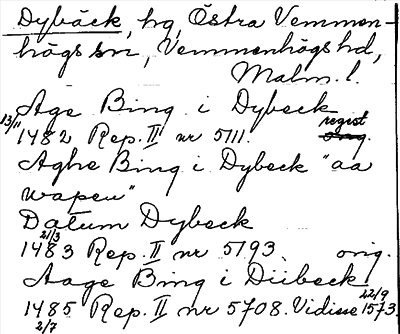 Dybäck, hg, Östra Vemmen-
högs sn, Vemmenhögs hd,
Malm. l.
Age Bing i Dybeck
13/11 1482 Rep. II nr 5111. regist
Aghe Bing i Dybeck "aa
wapen"
Datum Dybeck
21/3 1483 Rep. II nr 5193. orig.
Aage Bing i Diibeck
2/7 1485 Rep. II nr 5708. Vidisse 22/9 1573.